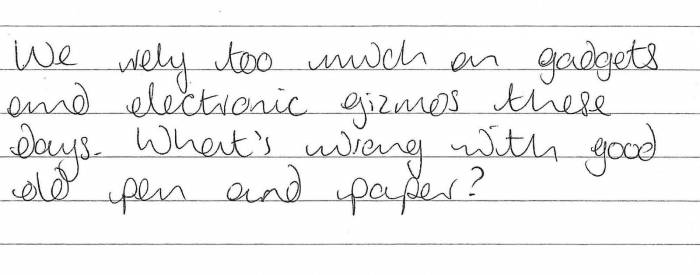 We rely too much on gadgets
and electronic gizmos these
days. What's wrong with good
old pen and paper?